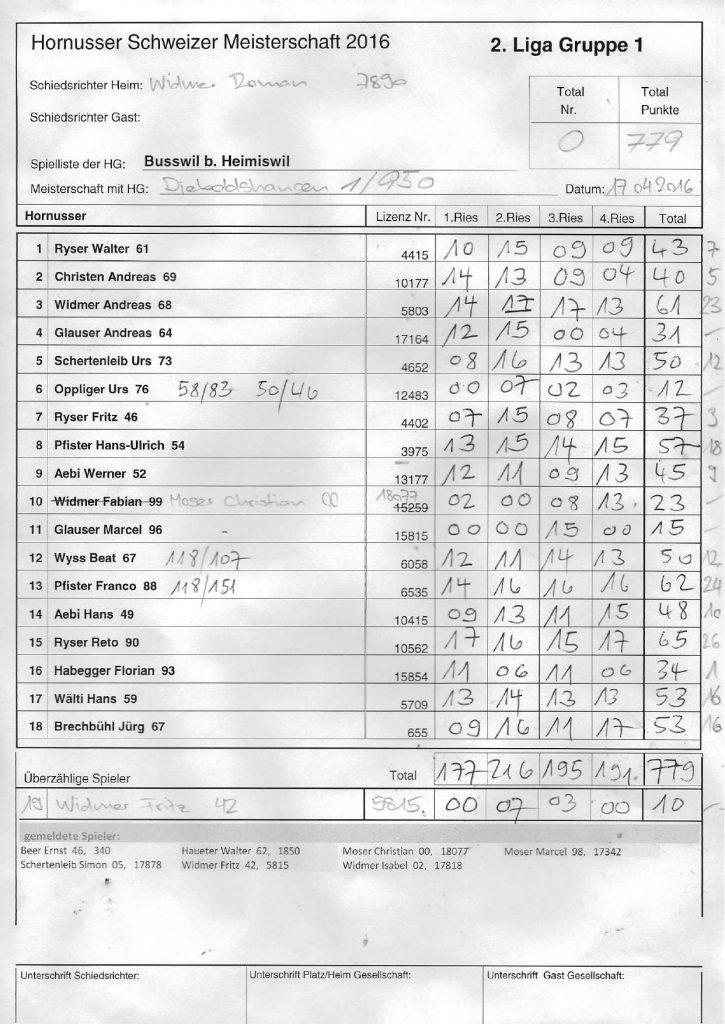 Hornusser Schweizer Meisterschaft 2016 2. Liga Gruppe 1
Schiedsrichter Heim: Widmer Roman 7890
Schiedsrichter Gast:
Total Nr. Total Punkte
0 779
Spielliste der HG: Busswil b. Heimiswil
Meisterschaft mit HG: 1/950 Datum: 17.04.2016
Hornusser Lizenz Nr. 1.Ries 2.Ries 3.Ries 4.Ries Total
1 Ryser Walter 61 4415 10 15 09 09 43 7
2 Christen Andreas 69 10177 14 13 09 04 40 5
3 Widmer Andreas 68 5803 14 17 17 13 61 23
4 Glauser Andreas 64 17164 12 15 00 04 31 -
5 Schertenleib Urs 73 4652 08 16 13 13 50 12
6 Oppliger Urs 76 58/83 50/46 12483 00 07 02 03 12 -
7 Ryser Fritz 46 4402 07 15 08 07 37 3
8 Pfister Hans-Ulrich 54 3975 13 15 14 15 57 18
9 Aebi Werner 52 13177 12 11 09 13 45 9
10 Widmer Fabian 99 Moser Christian 00 18077 15259 02 00 08 13 23 -
11 Glauser Marcel 96 - 15815 00 00 15 00 15 -
12 Wyss Beat 67 118/107 6058 12 11 14 13 50 12
13 Pfister Franco 88 118/151 6535 14 16 16 16 62 24
14 Aebi Hans 49 10415 09 13 11 15 48 10
15 Ryser Reto 90 10562 17 16 15 17 65 26
16 Habegger Florian 93 15854 11 06 11 06 34 1
17 Wälti Hans 59 5709 13 14 13 13 53 16
18 Brechbühl Jürg 67 655 09 16 11 17 53 16
Überzählige Spieler Total 177 216 195 191 779
19 Widmer Fritz 42 5815 00 07 03 00 10 -
gemeldete Spieler:
Beer Ernst 46, 340 Haueter Walter 62, 1850 Moser Christian 00, 18077 Moser Marcel 98, 17342
Schertenleib Simon 05, 17878 Widmer Fritz 42, 5815 Widmer Isabel 02, 17818
Unterschrift Schiedsrichter: Unterschrift Platz/Heim Gesellschaft: Unterschrift Gast Gesellschaft: